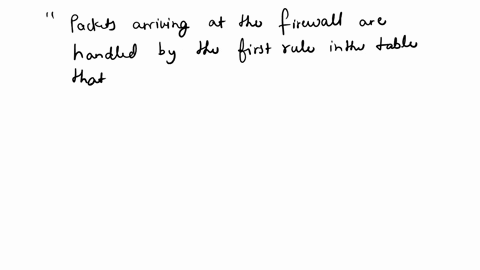 " Packets arriving at the firewall are
handled by the first rule in the table
that